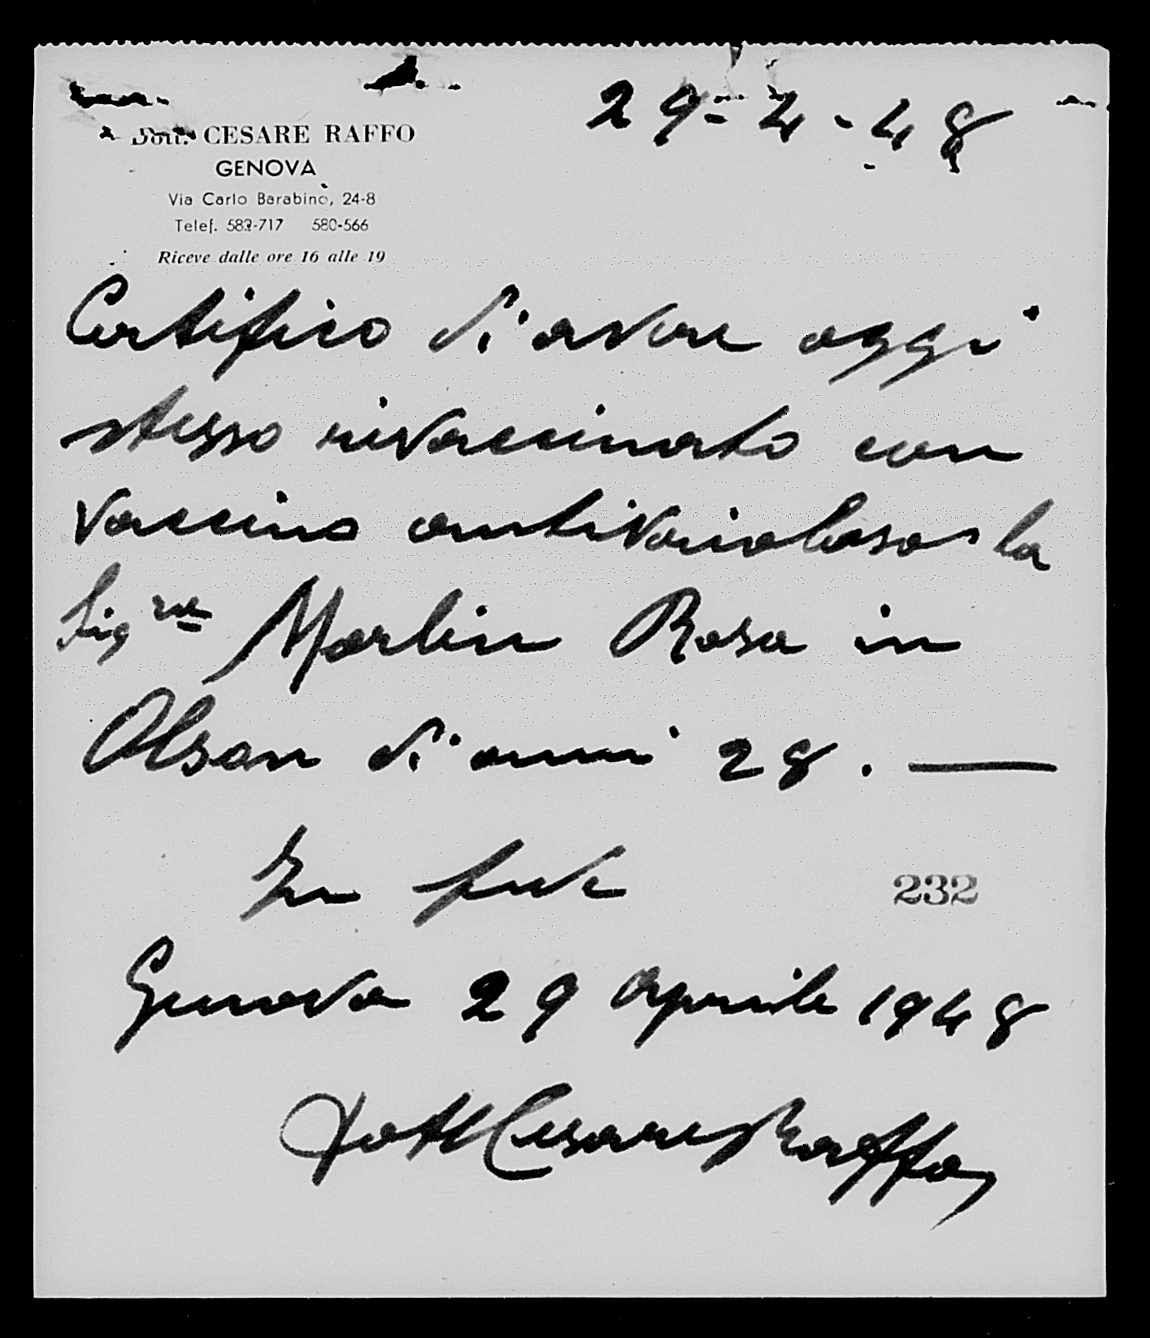 29-4-48
Dott. CESARE RAFFO
GENOVA
Via Carlo Barabino, 24-8
Telef. 582-717 580-566
Riceve dalle ore 16 alle 19
Certifico di avere oggi
stesso rivaccinato con
vaccino antivaioloso la
Sig.ra Marlin Rosa in
Olson di anni 28. —
In fede
232
Genova 29 Aprile 1948
Dott Cesare Raffo